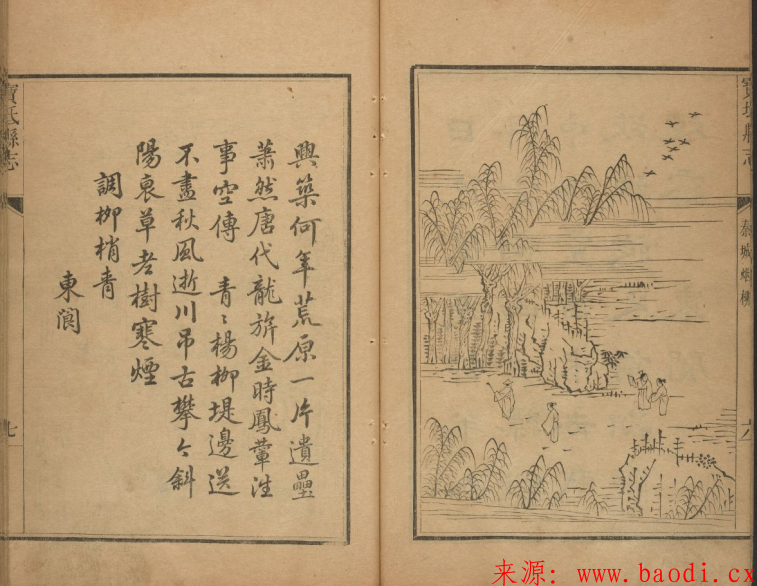 寶坻縣志
秦城烟樹
六
興築何年荒原一片遺壘
蕭然唐代龍旂金時鳳輦往
事空傳 青〻楊柳堤邊送
不盡秋風逝川弔古攀〻斜
陽衰草老樹寒煙
調柳梢青
東閬
寶坻縣志
七
来源: www.baodi.cx